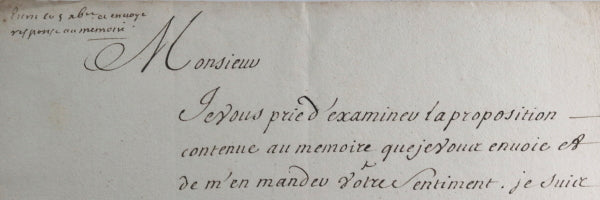 et envoyé
response au memoire
Monsieur
Je vous prie d'examiner la proposition
contenue au memoire que je vous envoie et
de m'en mander vôtre Sentiment. je suis